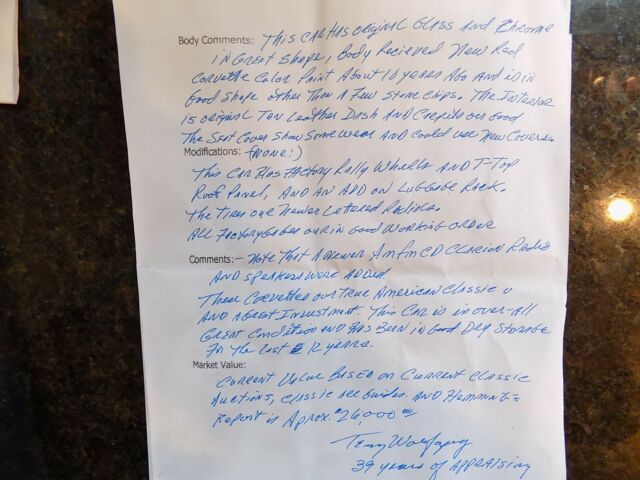 Body Comments: This car has original Glass and Chrome
in Great Shape, Body Recieved New Red
Corvette Color Paint About 10 years Ago And is in
Good Shape other than A Few Stone chips. The Interior
is original Tan Leather Dash AND Carpits our Good
The Seat Cover Show Some wear AND Could use New Covers.
Modifications: (None:)
This Car Has Factory Rally Wheels AND T-Top
Roof Panel, AND AN ADD ON Luggage Rack.
The Tires our Newer Lettered Radials.
ALL Factory Gages our in Good Working ORDER
Comments:- Note That A newer Am Fm CD Clarion Radio
AND speakers were ADDED
These Corvettes our True American Classic
AND A Great Investment. This Car is in over-All
Great Condition AND Has Been in Good Dry Storage
For the last 12 years.
Market Value:
Current Value Based on Current Classic
Auctions, Classic Guides. AND
Report is Aprox. $26,000 00
Terry Wolfgang
39 years of APPRAISING